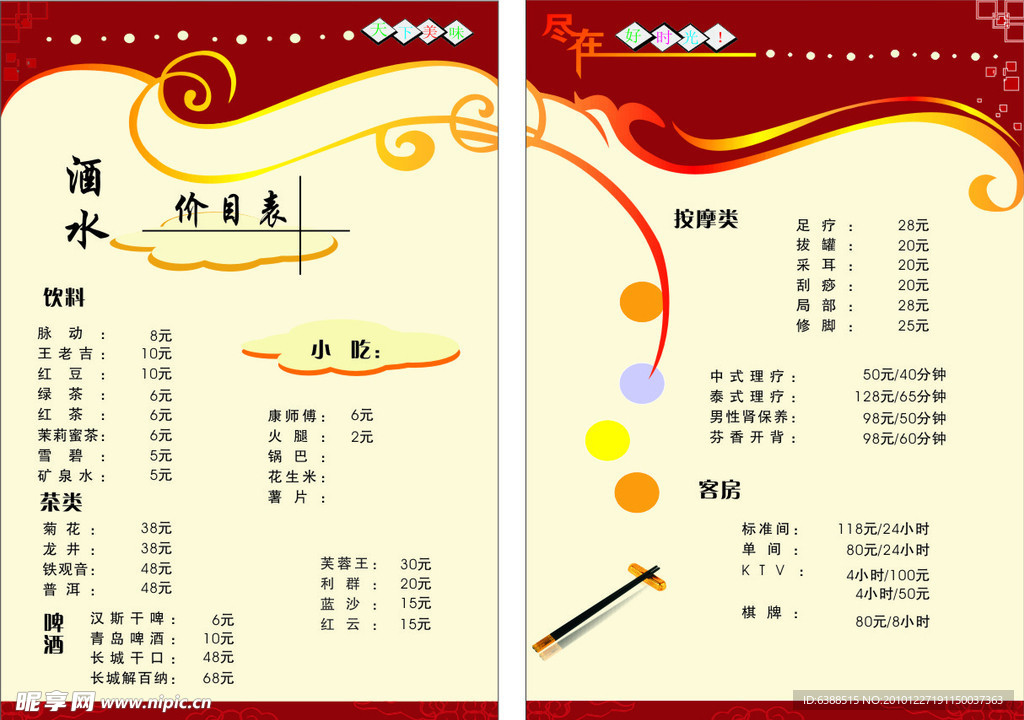 天下美味
酒水
价目表
饮料
脉动： 8元
王老吉： 10元
红豆： 10元
绿茶： 6元
红茶： 6元
茉莉蜜茶： 6元
雪碧： 5元
矿泉水： 5元
茶类
菊花： 38元
龙井： 38元
铁观音： 48元
普洱： 48元
啤酒
汉斯干啤： 6元
青岛啤酒： 10元
长城干口： 48元
长城解百纳： 68元
小吃：
康师傅： 6元
火腿： 2元
锅巴：
花生米：
薯片：
芙蓉王： 30元
利群： 20元
蓝沙： 15元
红云： 15元
尽在好时光！
按摩类
足疗： 28元
拔罐： 20元
采耳： 20元
刮痧： 20元
局部： 28元
修脚： 25元
中式理疗： 50元/40分钟
泰式理疗： 128元/65分钟
男性肾保养： 98元/50分钟
芬香开背： 98元/60分钟
客房
标准间： 118元/24小时
单间： 80元/24小时
KTV： 4小时/100元
4小时/50元
棋牌： 80元/8小时
昵享网 www.nipic.cn
ID:6388515 NO:20101227191150037363